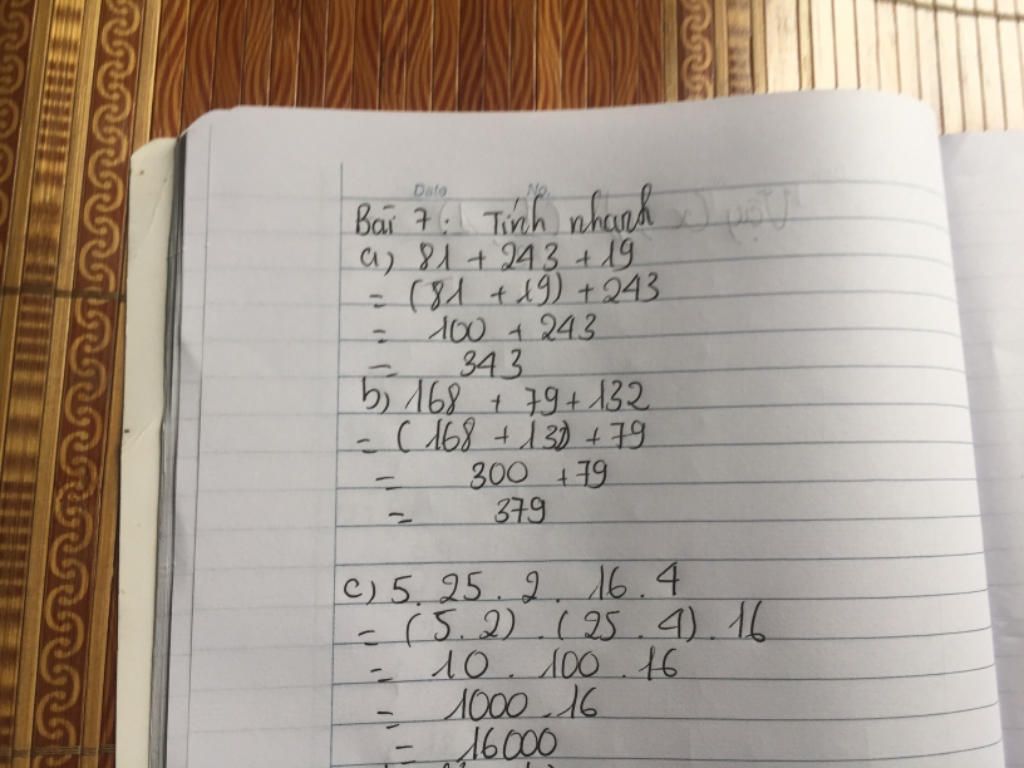 Date No.
Bài 7: Tính nhanh
a) 81 + 243 + 19
= (81 + 19) + 243
= 100 + 243
= 343
b) 168 + 79 + 132
= ( 168 + 132) + 79
= 300 + 79
= 379
c) 5. 25 . 2 . 16 . 4
= ( 5. 2) . ( 25 . 4) . 16
= 10 . 100 . 16
= 1000 . 16
= 16000